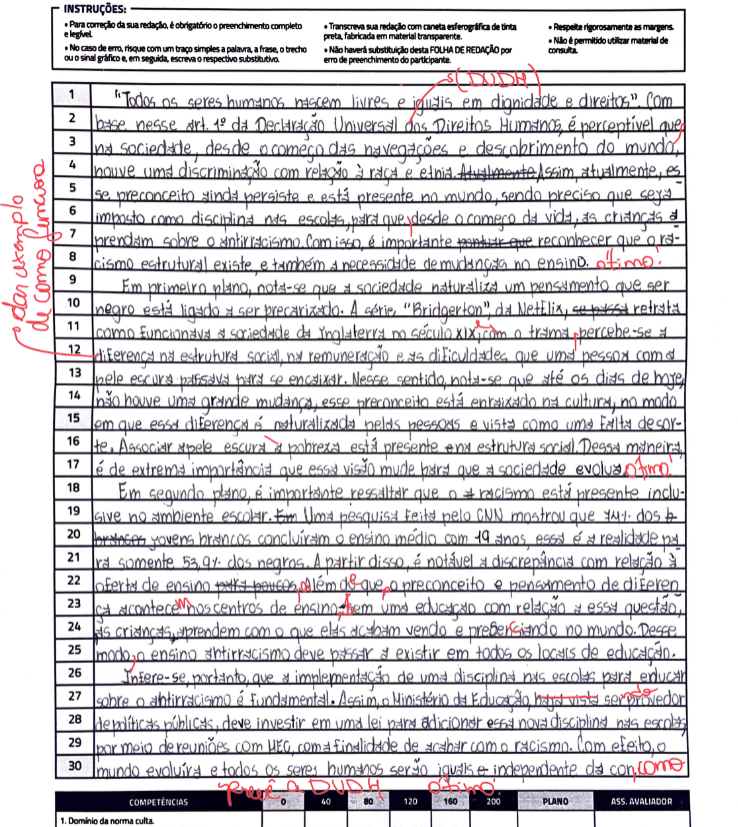 INSTRUÇÕES:
• Para correção da sua redação, é obrigatório o preenchimento completo e legível.
• No caso de erro, risque com um traço simples a palavra, a frase, o trecho ou o sinal gráfico e, em seguida, escreva o respectivo substitutivo.
• Transcreva sua redação com caneta esferográfica de tinta preta, fabricada em material transparente.
• Não haverá substituição desta FOLHA DE REDAÇÃO por erro de preenchimento do participante.
• Respeite rigorosamente as margens.
• Não é permitido utilizar material de consulta.
(DUDH)
1 "Todos os seres humanos nascem livres e iguais em dignidade e direitos". Com
2 base nesse art. 1º da Declaração Universal dos Direitos Humanos, é perceptível que
3 na sociedade, desde o começo das navegações e descobrimento do mundo,
4 houve uma discriminação com relação à raça e etnia. Atualmente Assim, atualmente, es
5 se preconceito ainda persiste e está presente no mundo, sendo preciso que seja
6 imposto como disciplina nas escolas, para que, desde o começo da vida, as crianças a
7 prendam sobre o antirracismo. Com isso, é importante pontuar que reconhecer que o ra-
8 cismo estrutural existe, e também a necessidade de mudanças no ensino. ótimo!
9 Em primeiro plano, nota-se que a sociedade naturaliza um pensamento que ser
10 negro está ligado a ser precarizado. A série, "Bridgerton", da Netflix, se passa retrata
11 como funcionava a sociedade da Inglaterra no século XIX, e com a trama, percebe-se a
dar exemplo de como funciona
12 diferença na estrutura social, na remuneração e as dificuldades que uma pessoa com a
13 pele escura passava para se encaixar. Nesse sentido, nota-se que até os dias de hoje,
14 não houve uma grande mudança, esse preconceito está enraizado na cultura, no modo
15 em que essa diferença é naturalizada pelas pessoas e vista como uma falta de sor-
16 te. Associar a pele escura à pobreza está presente na estrutura social. Dessa maneira,
17 é de extrema importância que essa visão mude para que a sociedade evolua. ótimo!
18 Em segundo plano, é importante ressaltar que o racismo está presente inclu-
19 sive no ambiente escolar. Em Uma pesquisa feita pelo CNN mostrou que 74% dos b
20 brancos jovens brancos concluíram o ensino médio com 19 anos, essa é a realidade pa
21 ra somente 53,9% dos negros. A partir disso, é notável a discrepância com relação à
22 oferta de ensino para poucos, além de que, o preconceito e pensamento de diferen
23 ça acontecem nos centros de ensino, sem uma educação com relação a essa questão,
24 as crianças, aprendem com o que elas acabam vendo e presenciando no mundo. Desse
25 modo, o ensino antirracismo deve passar a existir em todos os locais de educação.
26 Infere-se, portanto, que a implementação de uma disciplina nas escolas para educar
27 sobre o antirracismo é fundamental. Assim, o Ministério da Educação, haja vista ser provedor
28 de políticas públicas, deve investir em uma lei para adicionar essa nova disciplina nas escolas,
29 por meio de reuniões com MEC, com a finalidade de acabar com o racismo. Com efeito, o
30 mundo evoluirá e todos os seres humanos serão iguais e independente da cor, como
prevê a DUDH ótimo!
COMPETÊNCIAS 0 40 80 120 160 200 PLANO ASS. AVALIADOR
1. Domínio da norma culta.